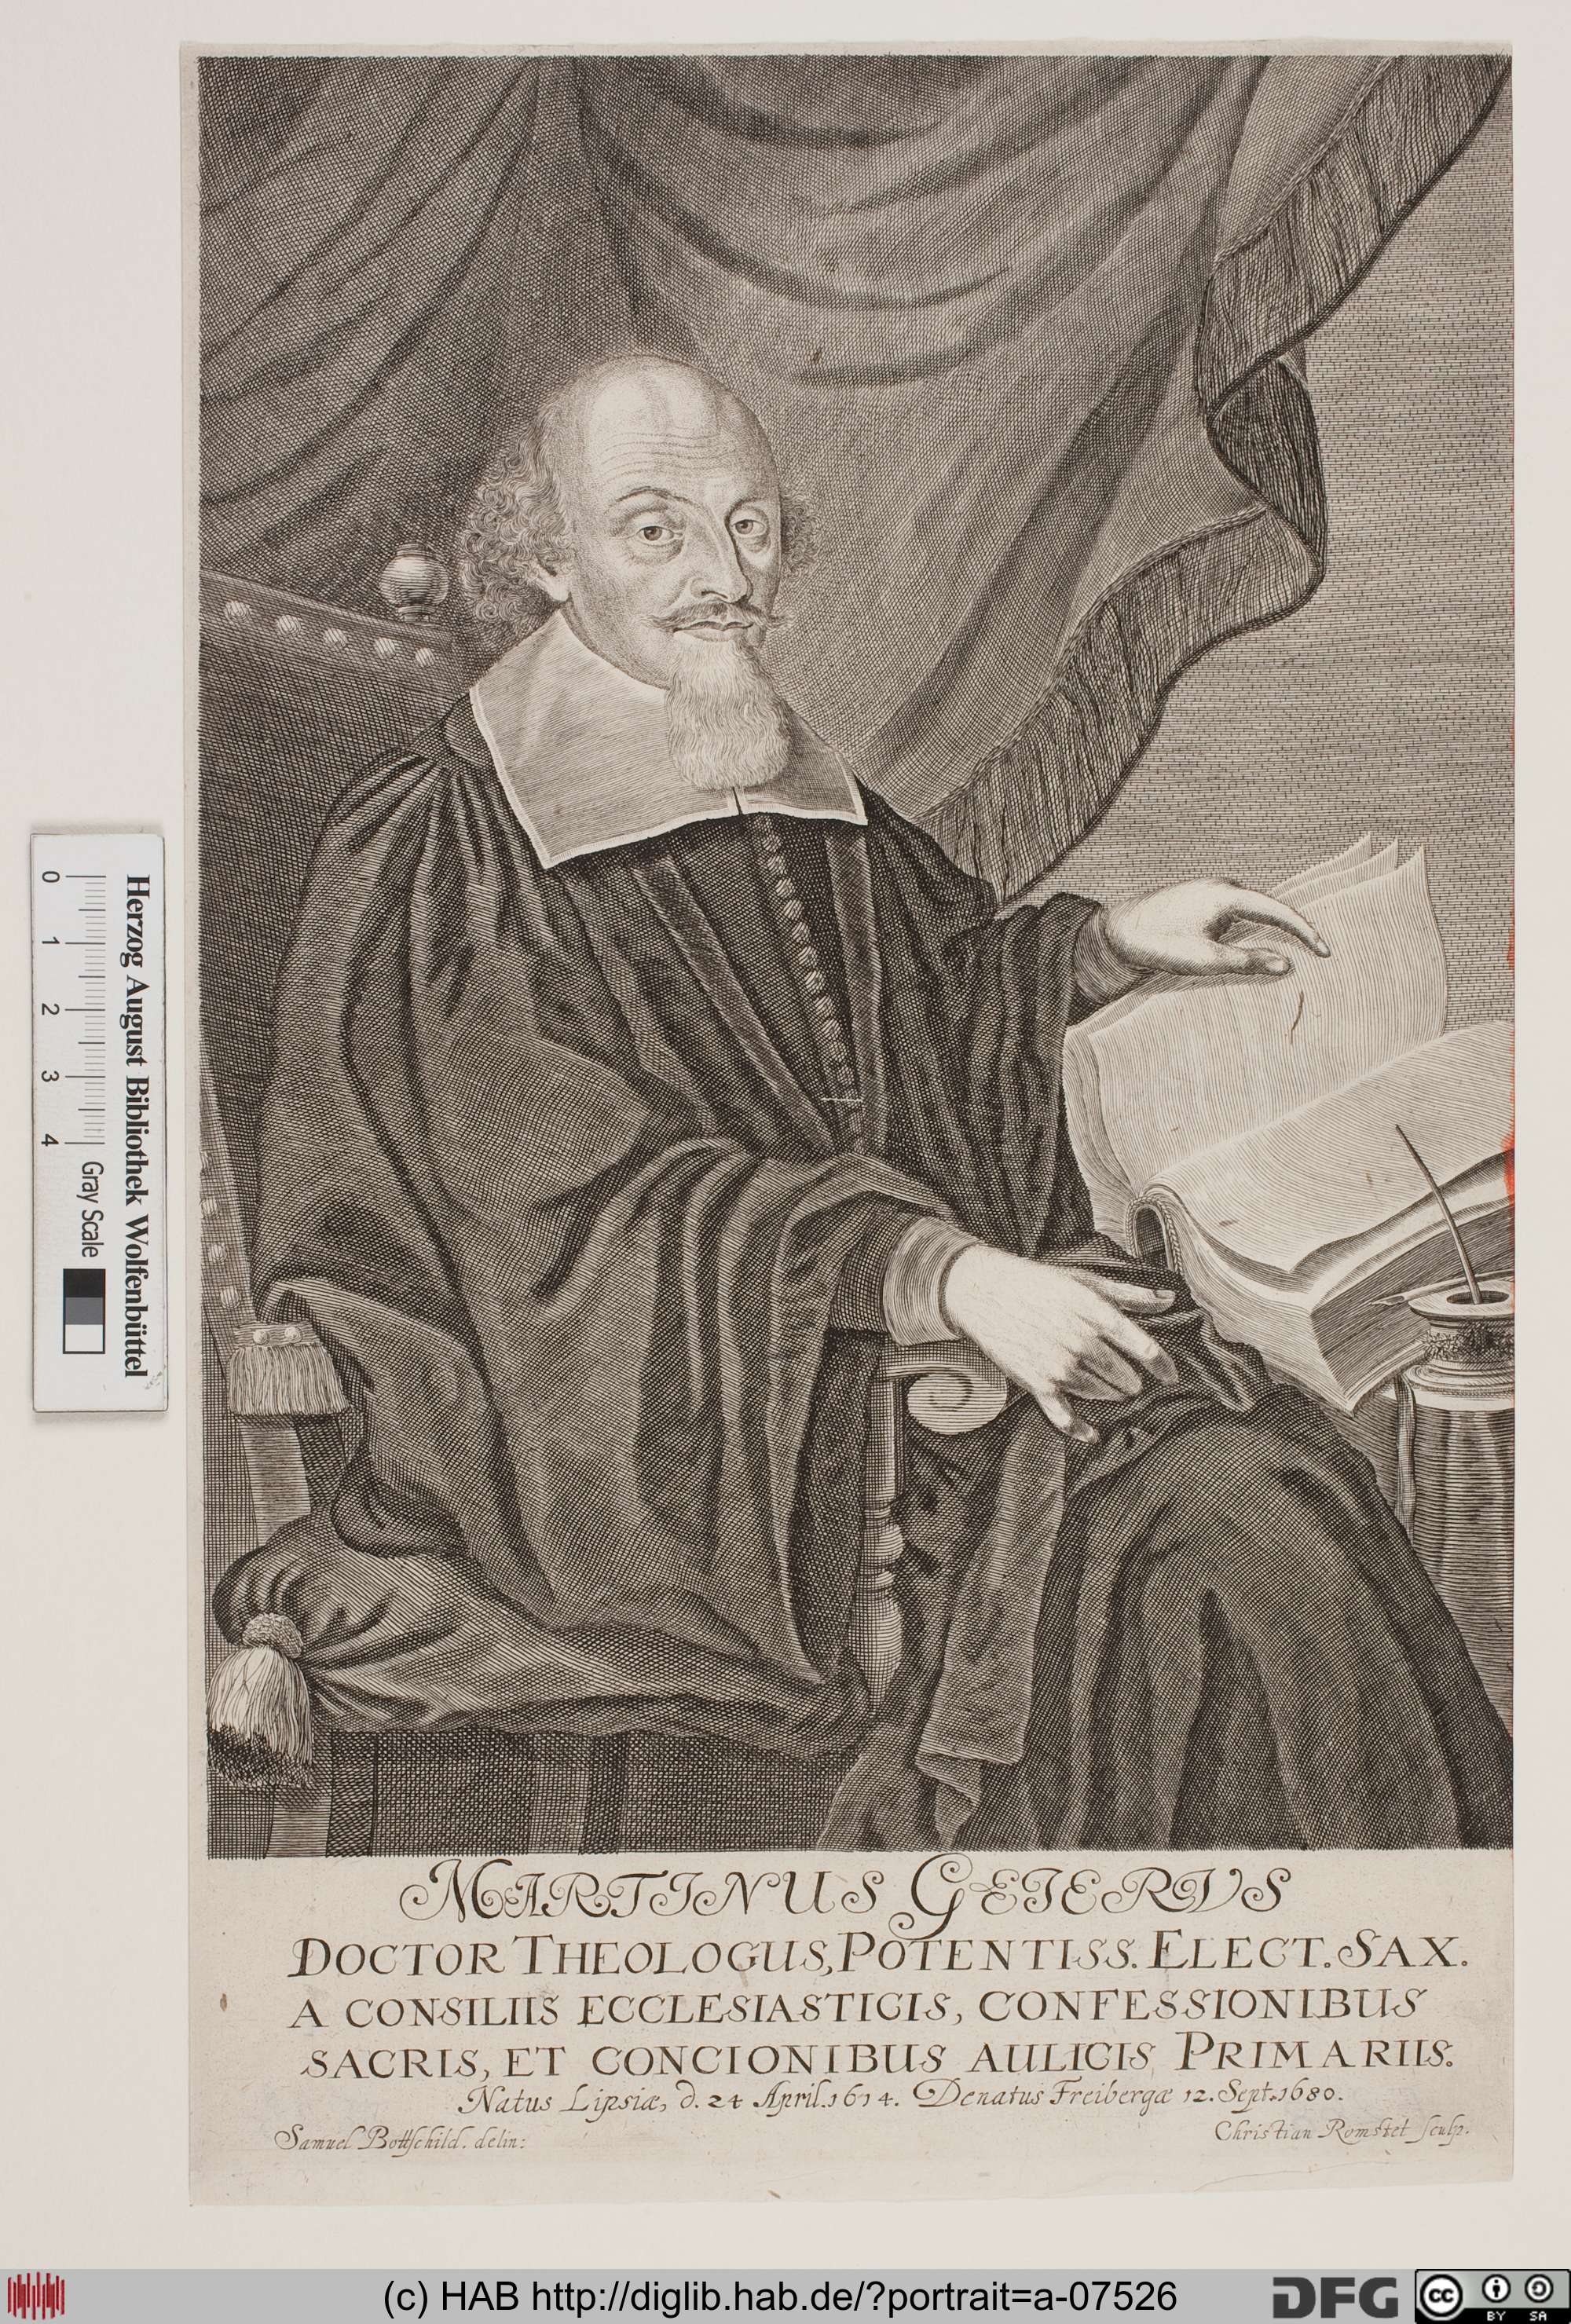 Herzog August Bibliothek Wolfenbüttel
0 1 2 3 4 Gray Scale
MARTINUS GEIERVS
DOCTOR THEOLOGUS, POTENTISS. ELECT. SAX.
A CONSILIIS ECCLESIASTICIS, CONFESSIONIBUS
SACRIS, ET CONCIONIBUS AULICIS PRIMARIIS.
Natus Lipsiæ, d. 24 April. 1614. Denatus Freibergæ 12. Sept. 1680.
Samuel Bottschild. delin: Christian Romstet sculp.
(c) HAB http://diglib.hab.de/?portrait=a-07526 DFG cc BY SA